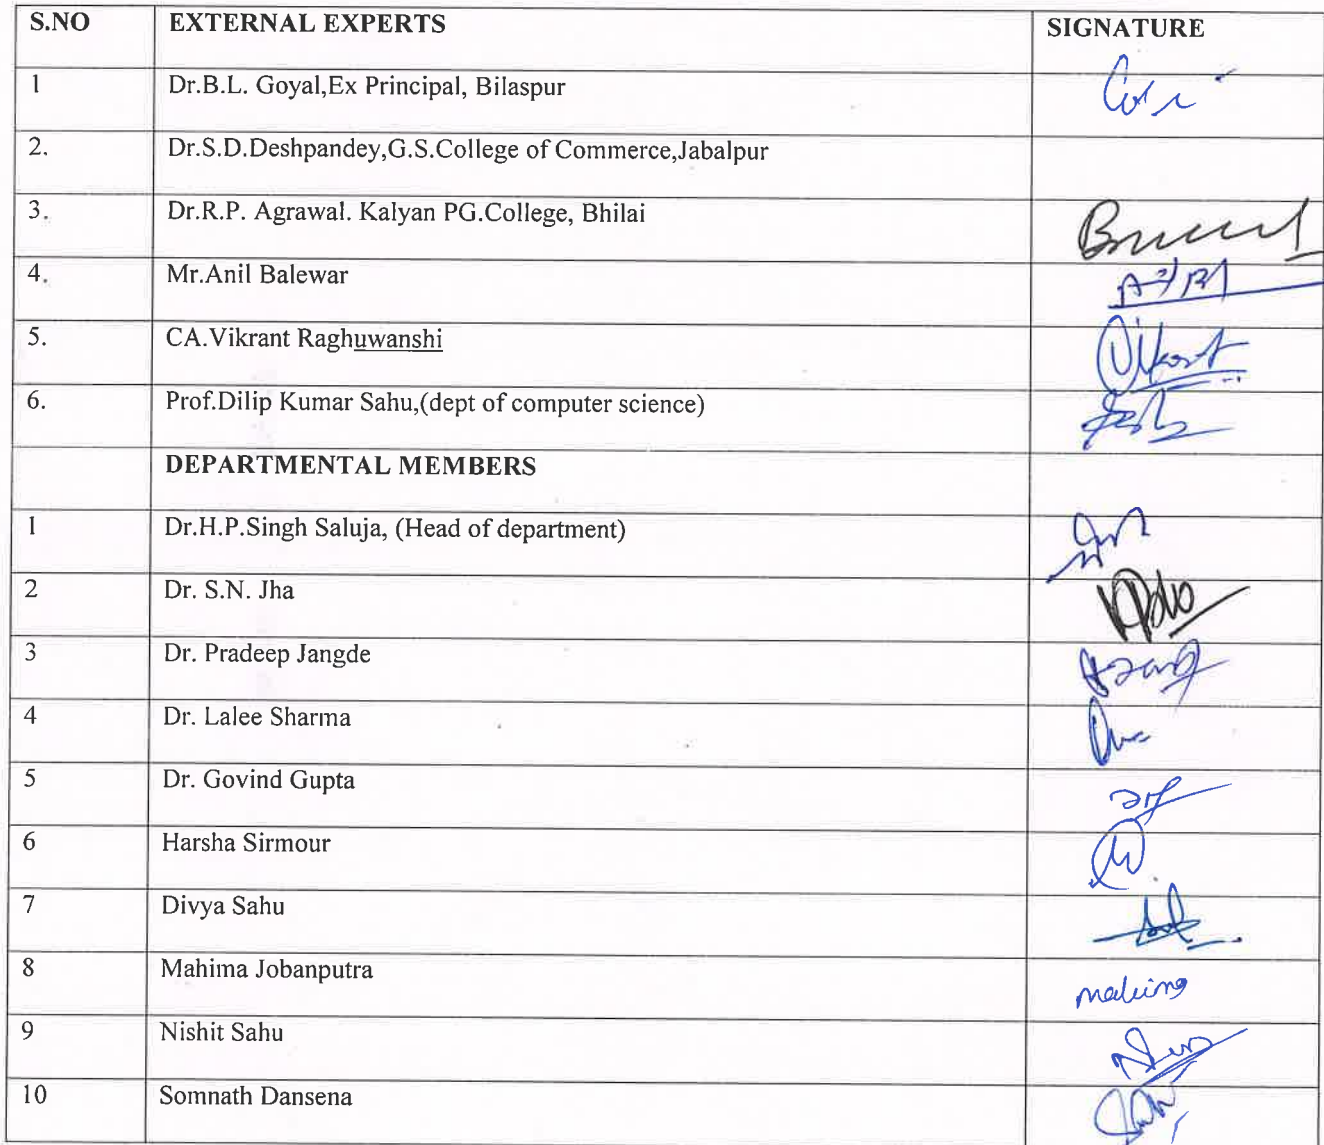 S.NO EXTERNAL EXPERTS SIGNATURE
1 Dr.B.L. Goyal,Ex Principal, Bilaspur
2. Dr.S.D.Deshpandey,G.S.College of Commerce,Jabalpur
3. Dr.R.P. Agrawal. Kalyan PG.College, Bhilai
4. Mr.Anil Balewar
5. CA.Vikrant Raghuwanshi
6. Prof.Dilip Kumar Sahu,(dept of computer science)
DEPARTMENTAL MEMBERS
1 Dr.H.P.Singh Saluja, (Head of department)
2 Dr. S.N. Jha
3 Dr. Pradeep Jangde
4 Dr. Lalee Sharma
5 Dr. Govind Gupta
6 Harsha Sirmour
7 Divya Sahu
8 Mahima Jobanputra
9 Nishit Sahu
10 Somnath Dansena